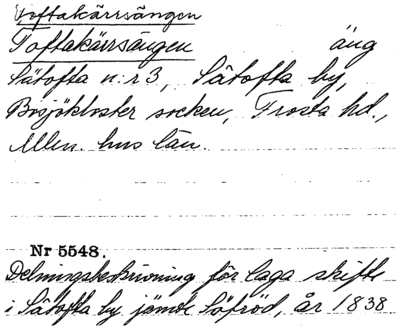 Toftakärrsängen
Toftakärrsängen äng
Sätofta n:r 3, Sätofta by,
Bosjökloster socken, Frosta hd.,
Mlm. hus län.
Nr 5548.
Delningsbeskrivning för laga skifte
i Sätofta by jämte Löfröd, år 1838